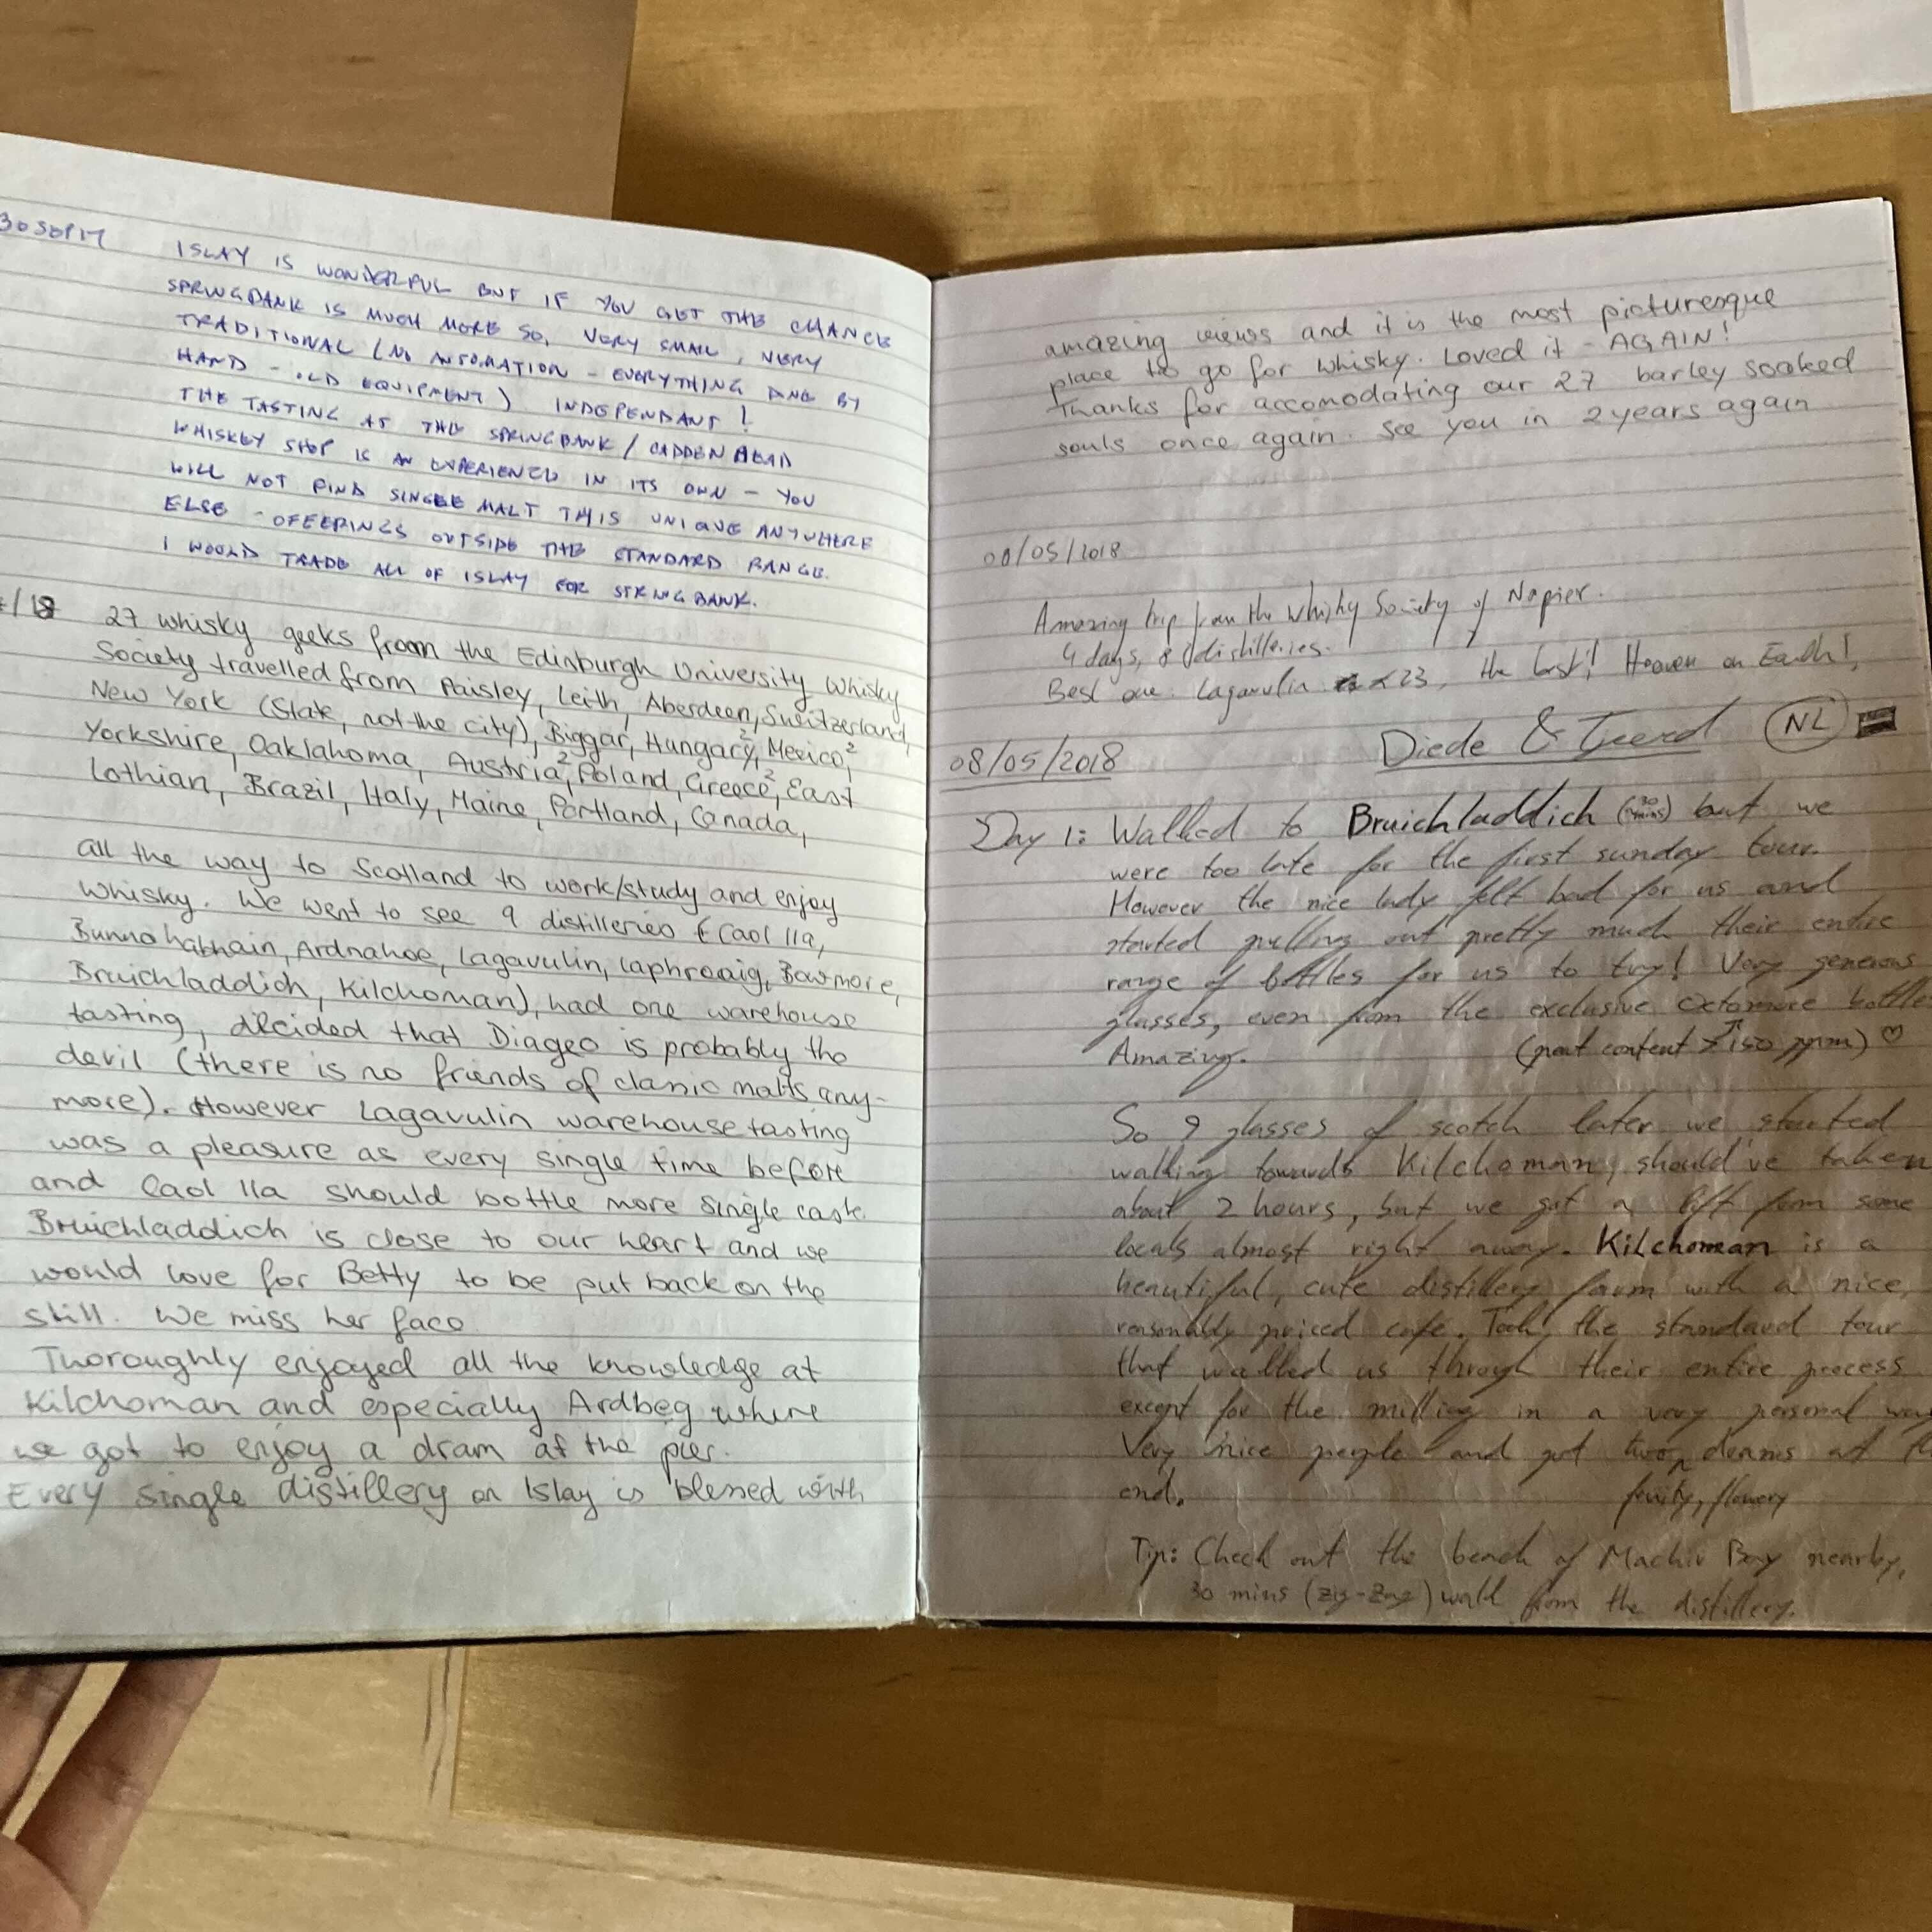 30 SEP 17
ISLAY IS WONDERFUL BUT IF YOU GET THE CHANCE
SPRINGBANK IS MUCH MORE SO, VERY SMALL, VERY
TRADITIONAL (NO AUTOMATION - EVERYTHING DONE BY
HAND - OLD EQUIPMENT) INDEPENDANT!
THE TASTING AT THE SPRINGBANK / CADDENHEAD
WHISKEY SHOP IS AN EXPERIENCE IN ITS OWN - YOU
WILL NOT FIND SINGLE MALT THIS UNIQUE ANYWHERE
ELSE - OFFERINGS OUTSIDE THE STANDARD RANGE.
I WOULD TRADE ALL OF ISLAY FOR SPRINGBANK.
/18 27 whisky geeks from the Edinburgh University Whisky
Society travelled from Paisley, Leith, Aberdeen, Switzerland,
New York (State, not the city), Biggar, Hungary², Mexico²,
Yorkshire, Oaklahoma, Austria², Poland, Greece², East
Lothian, Brazil, Italy, Maine, Portland, Canada,
all the way to Scotland to work/study and enjoy
whisky. We went to see 9 distilleries (Caol Ila,
Bunnahabhain, Ardnahoe, Lagavulin, Laphroaig, Bowmore,
Bruichladdich, Kilchoman), had one warehouse
tasting, decided that Diageo is probably the
devil (there is no friends of classic malts any-
more). However Lagavulin warehouse tasting
was a pleasure as every single time before
and Caol Ila should bottle more single cask.
Bruichladdich is close to our heart and we
would love for Betty to be put back on the
still. We miss her face
Thoroughly enjoyed all the knowledge at
Kilchoman and especially Ardbeg where
we got to enjoy a dram at the pier.
Every single distillery on Islay is blessed with
amazing views and it is the most picturesque
place to go for whisky. Loved it - AGAIN!
Thanks for accomodating our 27 barley soaked
souls once again. See you in 2 years again
08/05/2018
Amazing trip from the Whisky Society of Napier.
4 days, 8 distilleries.
Best one: Lagavulin 23, the last! Heaven on Earth!
08/05/2018 Diede & Tjeerd NL
Day 1: Walked to Bruichladdich (30 mins) but we
were too late for the first sunday tour.
However the nice lady felt bad for us and
started pulling out pretty much their entire
range of bottles for us to try! Very generous
glasses, even from the exclusive Octomore bottle
Amazing. (peat content > 150 ppm) ♡
So 9 glasses of scotch later we started
walking towards Kilchoman, should've taken
about 2 hours, but we got a lift from some
locals almost right away. Kilchoman is a
beautiful, cute distillery farm with a nice,
reasonably priced cafe. Took the standard tour
that walked us through their entire process
except for the milling in a very personal way
Very nice people and got two drams at
end. fruity, flowery
Tip: Check out the beach of Machir Bay nearby,
30 mins (zig-zag) walk from the distillery.